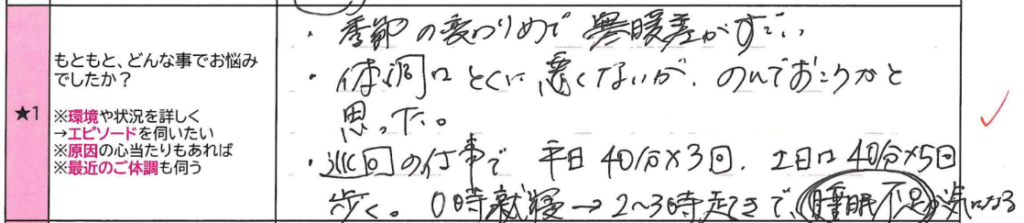 ・季節の変わりめで 寒暖差がすごい
もともと、どんな事でお悩み
でしたか?
・体調はとくに悪くないが、のんでおこうかと
思った。
★1
※環境や状況を詳しく
→エピソードを伺いたい
※原因の心当たりもあれば
※最近のご体調も伺う
・巡回の仕事で 平日 40分×3回、土日は 40分×5回
歩く。0時就寝→2~3時起きで、睡眠不足が気になる